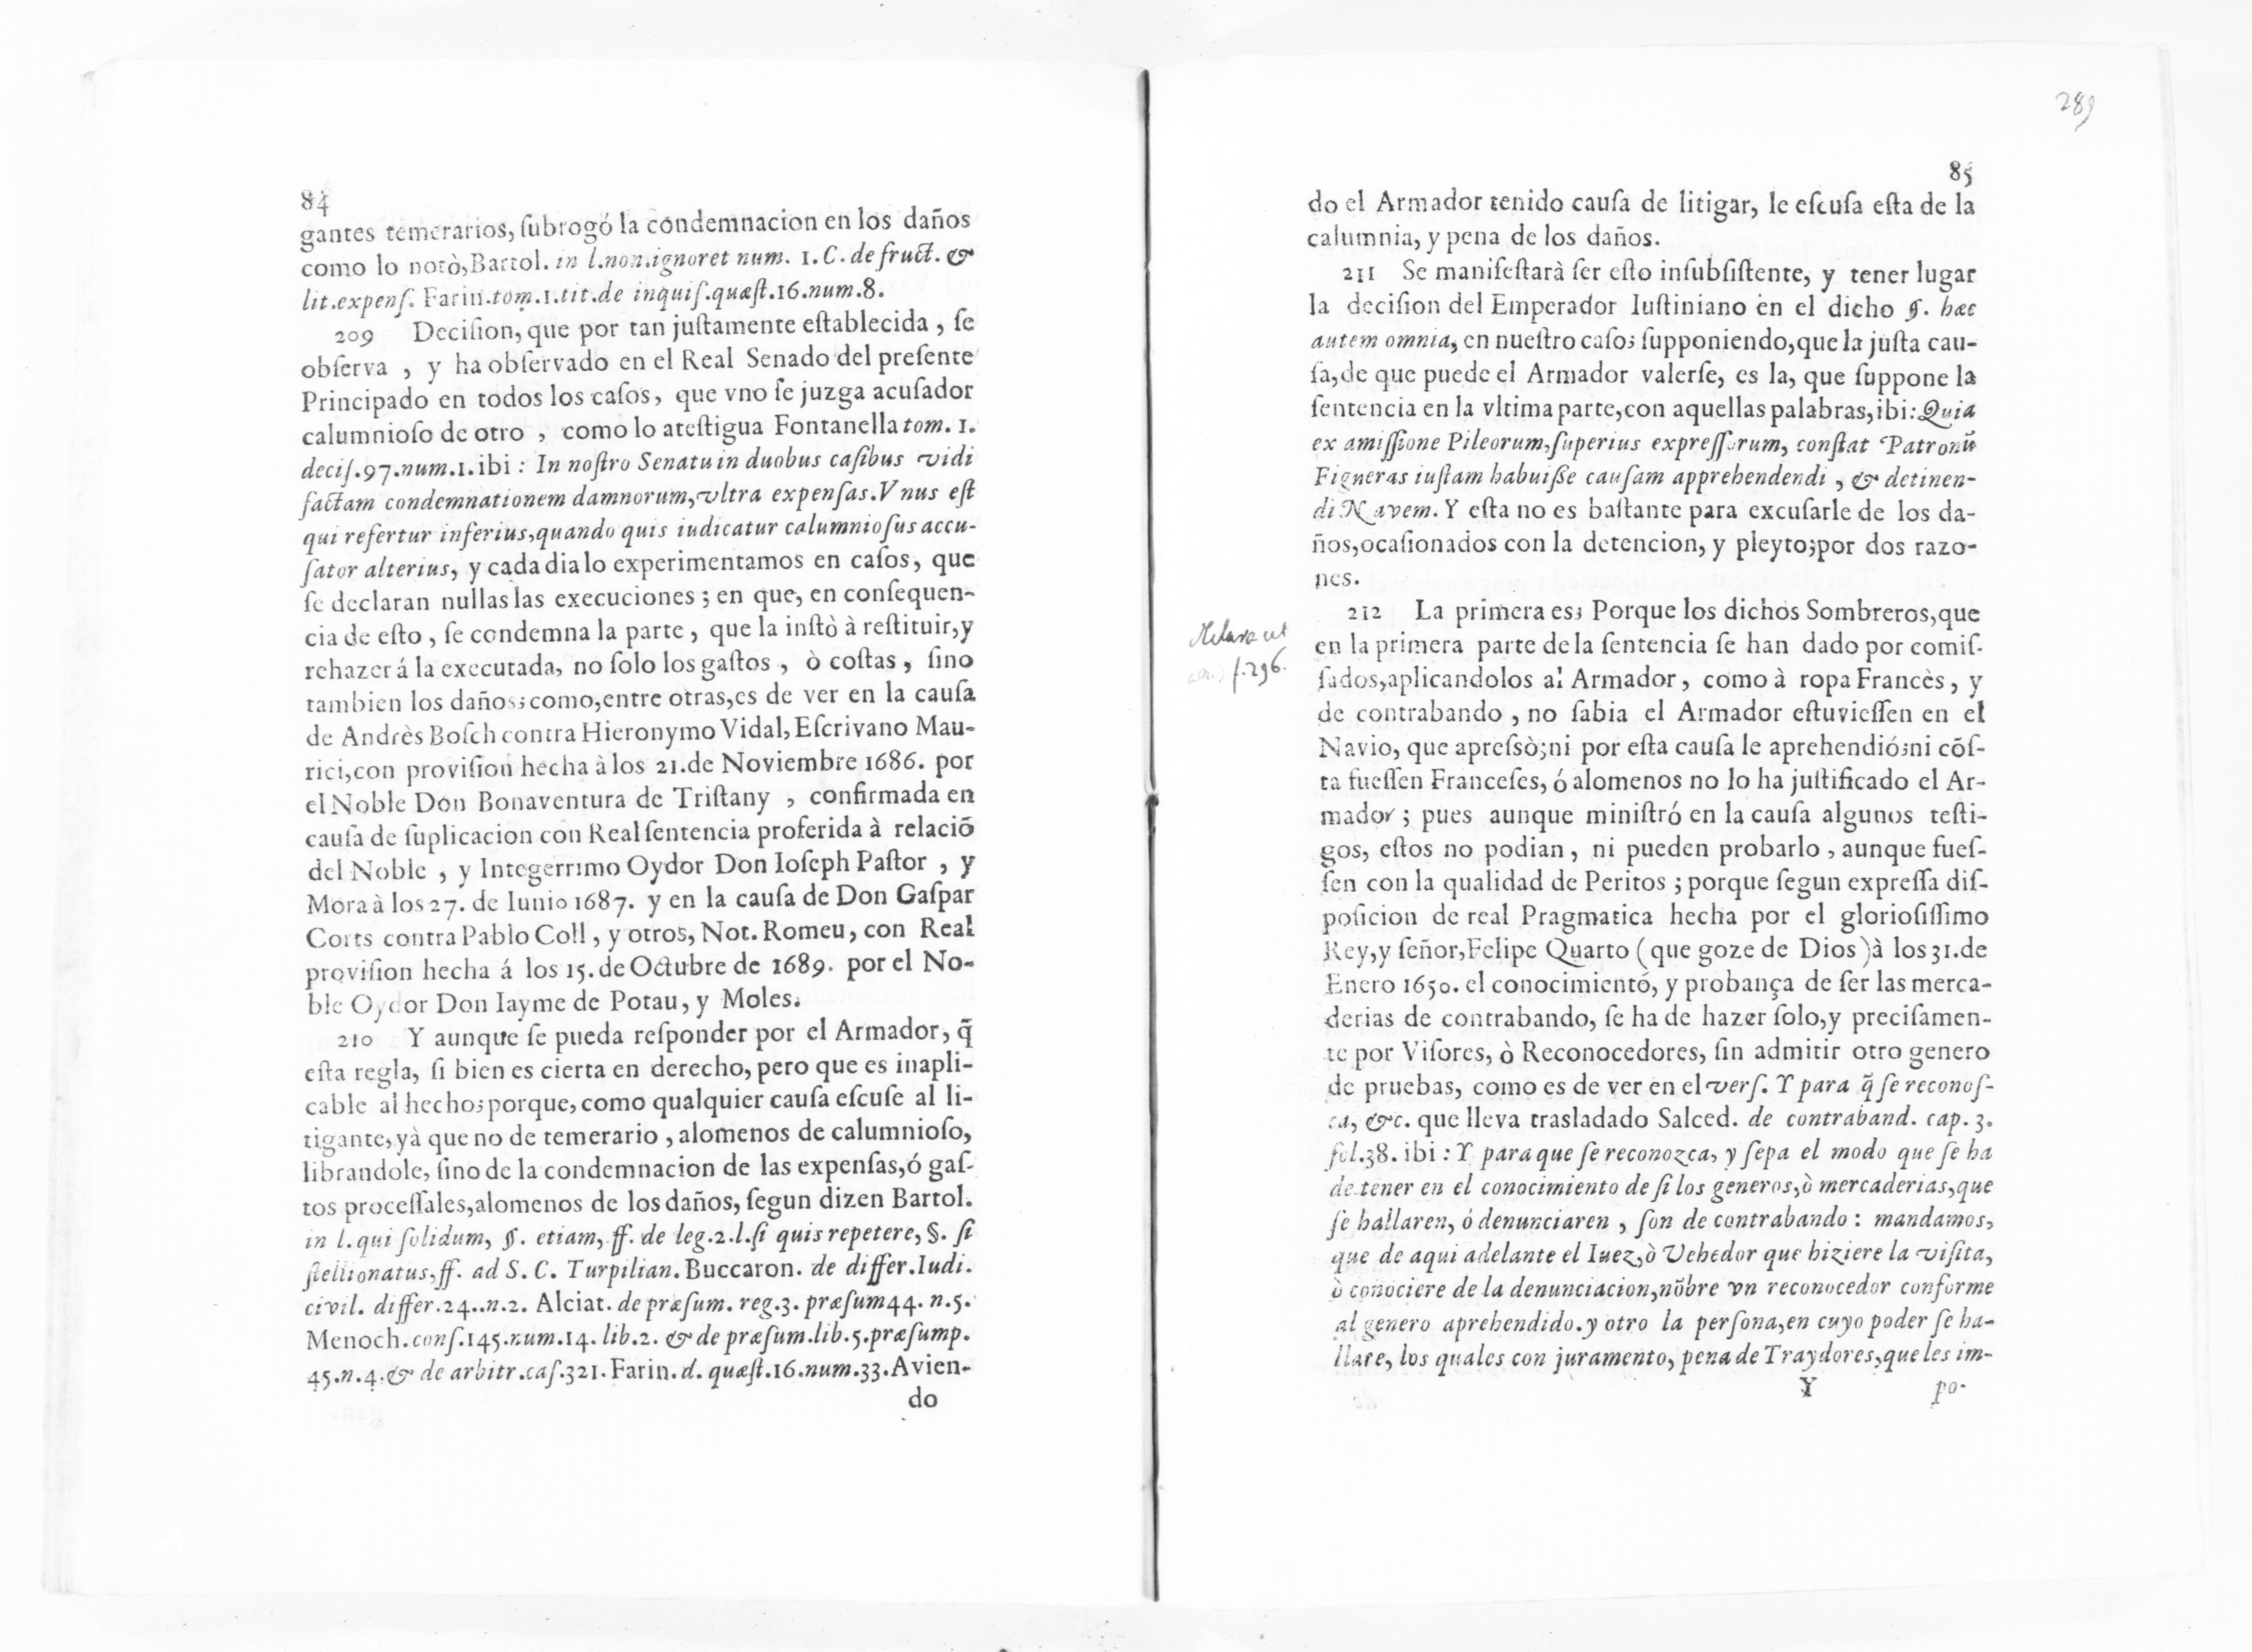 84
gantes temerarios, ſubrogó la condemnacion en los daños
como lo notò, Bartol. in l.non.ignoret num. 1. C. de fruct. &
lit.expenſ. Farin.tom.1.tit.de inquiſ.quæſt.16.num.8.
209 Deciſion, que por tan juſtamente eſtablecida , ſe
obſerva , y ha obſervado en el Real Senado del preſente
Principado en todos los caſos, que vno ſe juzga acuſador
calumnioſo de otro , como lo ateſtigua Fontanella tom. 1.
deciſ.97.num.1.ibi : In noſtro Senatu in duobus caſibus vidi
factam condemnationem damnorum,vltra expenſas.Vnus eſt
qui refertur inferius,quando quis iudicatur calumnioſus accu-
ſator alterius, y cada dia lo experimentamos en caſos, que
ſe declaran nullas las execuciones ; en que, en conſequen-
cia de eſto , ſe condemna la parte , que la inſtò à reſtituir,y
rehazer á la executada, no ſolo los gaſtos , ò coſtas , ſino
tambien los daños;como,entre otras,es de ver en la cauſa
de Andrès Boſch contra Hieronymo Vidal, Eſcrivano Mau-
rici,con proviſion hecha à los 21.de Noviembre 1686. por
el Noble Don Bonaventura de Triſtany , confirmada en
cauſa de ſuplicacion con Real ſentencia proferida à relaciõ
del Noble , y Integerrimo Oydor Don Ioſeph Paſtor , y
Mora à los 27. de Iunio 1687. y en la cauſa de Don Gaſpar
Corts contra Pablo Coll , y otros, Not. Romeu, con Real
proviſion hecha á los 15. de Octubre de 1689. por el No-
ble Oydor Don Iayme de Potau, y Moles.
210 Y aunque ſe pueda reſponder por el Armador, q̃
eſta regla, ſi bien es cierta en derecho, pero que es inapli-
cable al hecho;porque, como qualquier cauſa eſcuſe al li-
tigante, yà que no de temerario , alomenos de calumnioſo,
librandole, ſino de la condemnacion de las expenſas,ó gaſ-
tos proceſſales,alomenos de los daños, ſegun dizen Bartol.
in l. qui ſolidum, §. etiam, ff. de leg.2.l.ſi quis repetere, §. ſi
ſtellionatus,ff. ad S. C. Turpilian. Buccaron. de differ.Iudi.
civil. differ.24..n.2. Alciat. de præſum. reg.3. præſum44. n.5.
Menoch. conſ.145.num.14. lib.2. & de præſum.lib.5.præſump.
45.n.4.& de arbitr.caſ.321. Farin. d. quæſt.16.num.33.Avien-
do
289
85
do el Armador tenido cauſa de litigar, le eſcuſa eſta de la
calumnia, y pena de los daños.
211 Se manifeſtarà ſer eſto inſubſiſtente, y tener lugar
la deciſion del Emperador Iuſtiniano en el dicho §. hæc
autem omnia, en nueſtro caſo; ſupponiendo,que la juſta cau-
ſa,de que puede el Armador valerſe, es la, que ſuppone la
ſentencia en la vltima parte,con aquellas palabras,ibi: Quia
ex amiſſione Pileorum,ſuperius expreſſorum, conſtat Patronũ
Figneras iuſtam habuiſſe cauſam apprehendendi , & detinen-
di Navem. Y eſta no es baſtante para excuſarle de los da-
ños,ocaſionados con la detencion, y pleyto;por dos razo-
nes.
212 La primera es; Porque los dichos Sombreros,que
en la primera parte de la ſentencia ſe han dado por comiſ-
ſados,aplicandolos al Armador , como à ropa Francès , y
de contrabando , no ſabia el Armador eſtuvieſſen en el
Navio, que apreſsò;ni por eſta cauſa le aprehendió;ni cõſ-
ta fueſſen Franceſes, ó alomenos no lo ha juſtificado el Ar-
mador ; pues aunque miniſtró en la cauſa algunos teſti-
gos, eſtos no podian , ni pueden probarlo , aunque fueſ-
ſen con la qualidad de Peritos ; porque ſegun expreſſa diſ-
poſicion de real Pragmatica hecha por el glorioſiſſimo
Rey,y ſeñor,Felipe Quarto (que goze de Dios )à los 31.de
Enero 1650. el conocimientó, y probança de ſer las merca-
derias de contrabando, ſe ha de hazer ſolo,y preciſamen-
te por Viſores, ò Reconocedores, ſin admitir otro genero
de pruebas, como es de ver en el verſ. Y para q̃ ſe reconoſ-
ca, &c. que lleva trasladado Salced. de contraband. cap. 3.
fol.38. ibi : Y para que ſe reconozca, y ſepa el modo que ſe ha
de tener en el conocimiento de ſi los generos,ò mercaderias,que
ſe hallaren, ó denunciaren , ſon de contrabando : mandamos,
que de aqui adelante el Iuez,ò Vehedor que hiziere la viſita,
ò conociere de la denunciacion,nõbre vn reconocedor conforme
al genero aprehendido.y otro la perſona,en cuyo poder ſe ha-
llare, los quales con juramento, pena de Traydores,que les im-
Y po-
f.296.